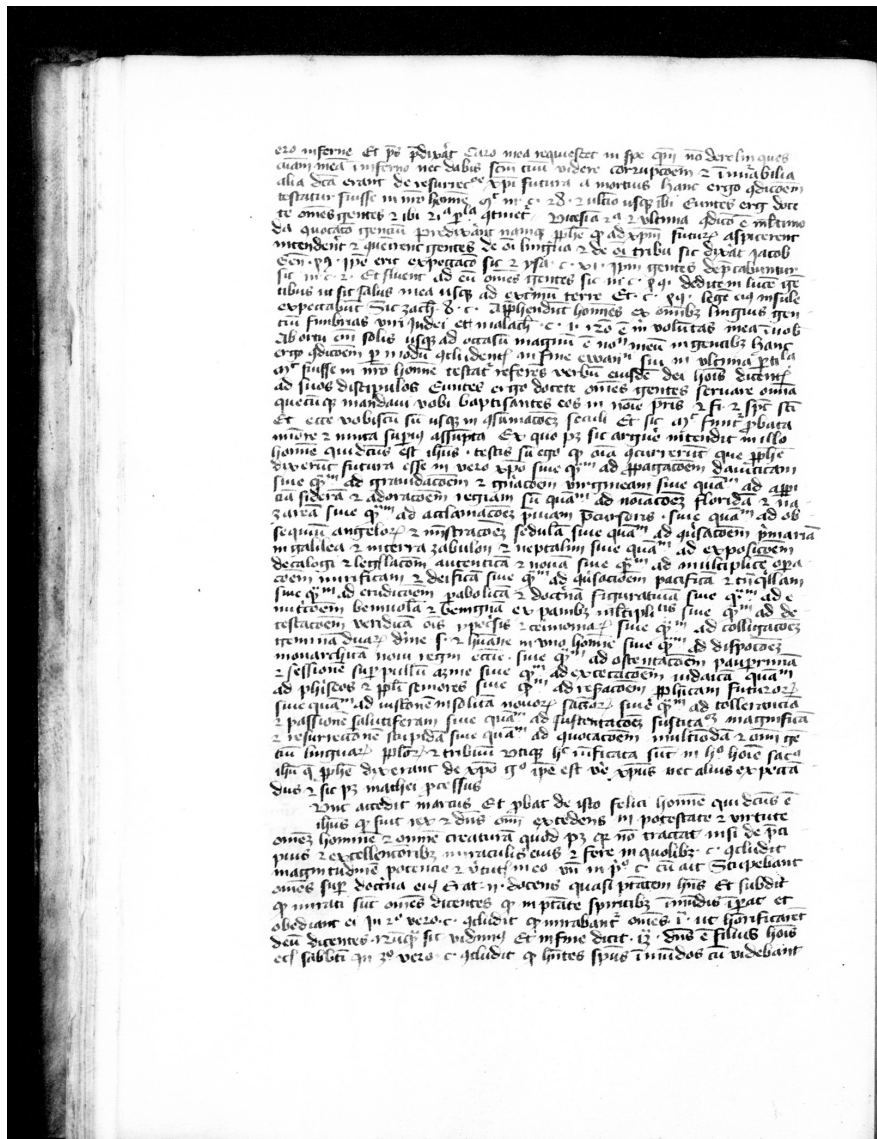 ero inferne Et ps̄ p̄dixāt Caro mea requiescet in spe qm̄ nō derelinques
aīam meā ī inferno nec dabis scm̄ tuū videre corrupcōem ⁊ īnūabilia
alia dc̄a erant de resurrecōe xp̄i futura a mortuis hanc ergo ꝯdicōem
testatur fuisse in nr̄o hōīne mͭ c. 28. ⁊ ultīo usqꝫ ibi Euntes erg doce
te om̄es gentes ⁊ ibi ꝯtinet. Vicesia ⁊ ultima ꝯdico ē
da quocatō genciū predixānt namqꝫ ꝓphe ꝙ ad xpm̄ futuꝝ aspicerent
intenderēt ⁊ querent gentes de oī lingua ⁊ de oī tribu sic dixāt Jacob
Gen̄. 49. ip̄e erit expectacō sic ⁊ ysa. c. xi. ipm̄ gentes dep̄cabuntur
sic in c. 2. Et fluent ad eū om̄es gentes sic in c. 49. dedi te in lucē gē
tibus ut sit salus mea usqꝫ ad extmū terre Et. c. 49. lege eiꝰ insule
expectabūt Sic zach̄. 8. c. Apphendēt homēs ex om̄ibꝫ linguis gen
ciū fimbrias viri Judei et malach̄. c. 1. nō ē m̄ volūtas mea ī uob
Ab ortu em̄ solis usqꝫ ad occasū magnū ē nom̄ meū in gentibꝫ hanc
ergo ꝯdicōem ꝑ modū ꝯcludentꝭ in fine ewan̄ sui in ultima ꝑticla
mͭ fuisse in nr̄o hōīne testat̄ referēs verbū eiusdē dei hōis dicentꝭ
ad suos discipulos Euntes ergo docete om̄es gentes seruare om̄ia
quecūqꝫ mandaui vobꝭ baptisantes eos in noīe pr̄is ⁊ fi. ⁊ spc̄ scī
Et ecce vobiscū sū usqꝫ in ꝯsumacōeꝫ seculi Et sic mͭ sunt ꝓbata
miore ⁊ iuncta supiꝰ assūpta Ex quo pꝫ sic arguē̄ intendit in illo
hōīne qui dictus est ihus. testis sū ego ꝙ oīa ꝯcurrerūt que ꝓphe
dixerūt futura esse in vero xp̄o siue qm̄ ad ꝓpagacōem dauiticam
siue qm̄ ad grauidacōem ⁊ gnacōem virgineam siue quam̄ ad appi
ciā siderā ⁊ adoracōem regiam siue quam̄ ad noiacōeꝫ floridā ⁊ na
zareā siue qm̄ ad acclamacōeꝫ p̄uiam p̄cursoris. siue quam̄ ad ob
sequiū angeloꝝ ⁊ mīstracōeꝫ sedulā siue quam̄ ad ꝯūsacōem p̄mariā
in galilea ⁊ in terra zabulon ⁊ neptalim siue quam̄ ad exposicōem
decalogi ⁊ legꝭlacōm autenticā ⁊ nouā siue qm̄ ad multiplicē opa
cōem mirificam ⁊ deificā siue qm̄ ad ꝯūsacōem pacificā ⁊ tn̄qͥllam
siue qm̄ ad erudicōem ꝑabolicā ⁊ doctnā figuratiuā siue qm̄ ad e
nutcōem beniuolā ⁊ benignā ex panibꝫ siue qm̄ ad de
testacōem veridicā oīs ypocsis ⁊ cerimoniaꝝ siue qm̄ ad colligacōeꝫ
geminā duaꝝ dīne s. ⁊ hūane in uno hōīne siue qm̄ ad disposcōeꝫ
monarchicā noui regni eccīe. siue qm̄ ad ostentacōem pauprimā
⁊ sessionē suꝑ pullū asine siue qm̄ ad excecacōem iudaicā quam̄
ad phīseos ⁊ ppl̄i seniores siue qm̄ ad refacōem ꝓphicam futuroꝝ
siue quam̄ ad insolitā nouoꝝ siue qm̄ ad tollerancīā
⁊ passionē salutiferam siue quam̄ ad sustentacōeꝫ magnificā
⁊ resurrectiōne stupidā siue quam̄ ad quocacōem multiodā ⁊ om̄i ge
tiū linguaꝝ ppl̄oꝝ ⁊ tribuū Utiqꝫ hͨ iuificata sūt in hͦ hōīe sacͦ
ihū ꝗ ꝓphe dixerant de xp̄o gͦ ip̄e est ve᷑ xp̄us nec alius expectā
dus ⁊ sic pꝫ mathei ꝓcessus
Unc accedit marcus Et ꝓbat de isto felici hōīne qui dc̄us ē
ihus ꝙ fuit rex ⁊ dn̄s oīm excedens in potestate ⁊ virtute
omēꝫ homine ⁊ omnē creaturā quod pꝫ qꝛ nō tractat nisi de p̄ci
puis ⁊ excellencioribꝫ miraculis eius ⁊ fere in quolibꝫ. c. ꝯcludit
magitudinē potencie ⁊ v̄tutꝭ in eo un̄ in p̄o. c. cū ait Stupebant
om̄es suꝑ doctn̄a eiꝰ Erat. n. docens quasi ptātem hn̄s Et subdit
ꝙ mirati sūt om̄es dicentes ꝙ in ptāte spiritibꝫ īmūdis īꝑat et
obediunt ei Jn 2ͦ vero. c. ꝯcludit ꝙ mirabant᷑ om̄es ī. ut honīficarēt
deū dicentes. nūqꝫ sic vidimꝰ Et in fine dicit. iꝫ. dn̄s ē filius hōis
ecī sabbti Jn 3ͦ vero. c. ꝯcludit ꝙ hn̄tes spūs īmūdos cū videbant